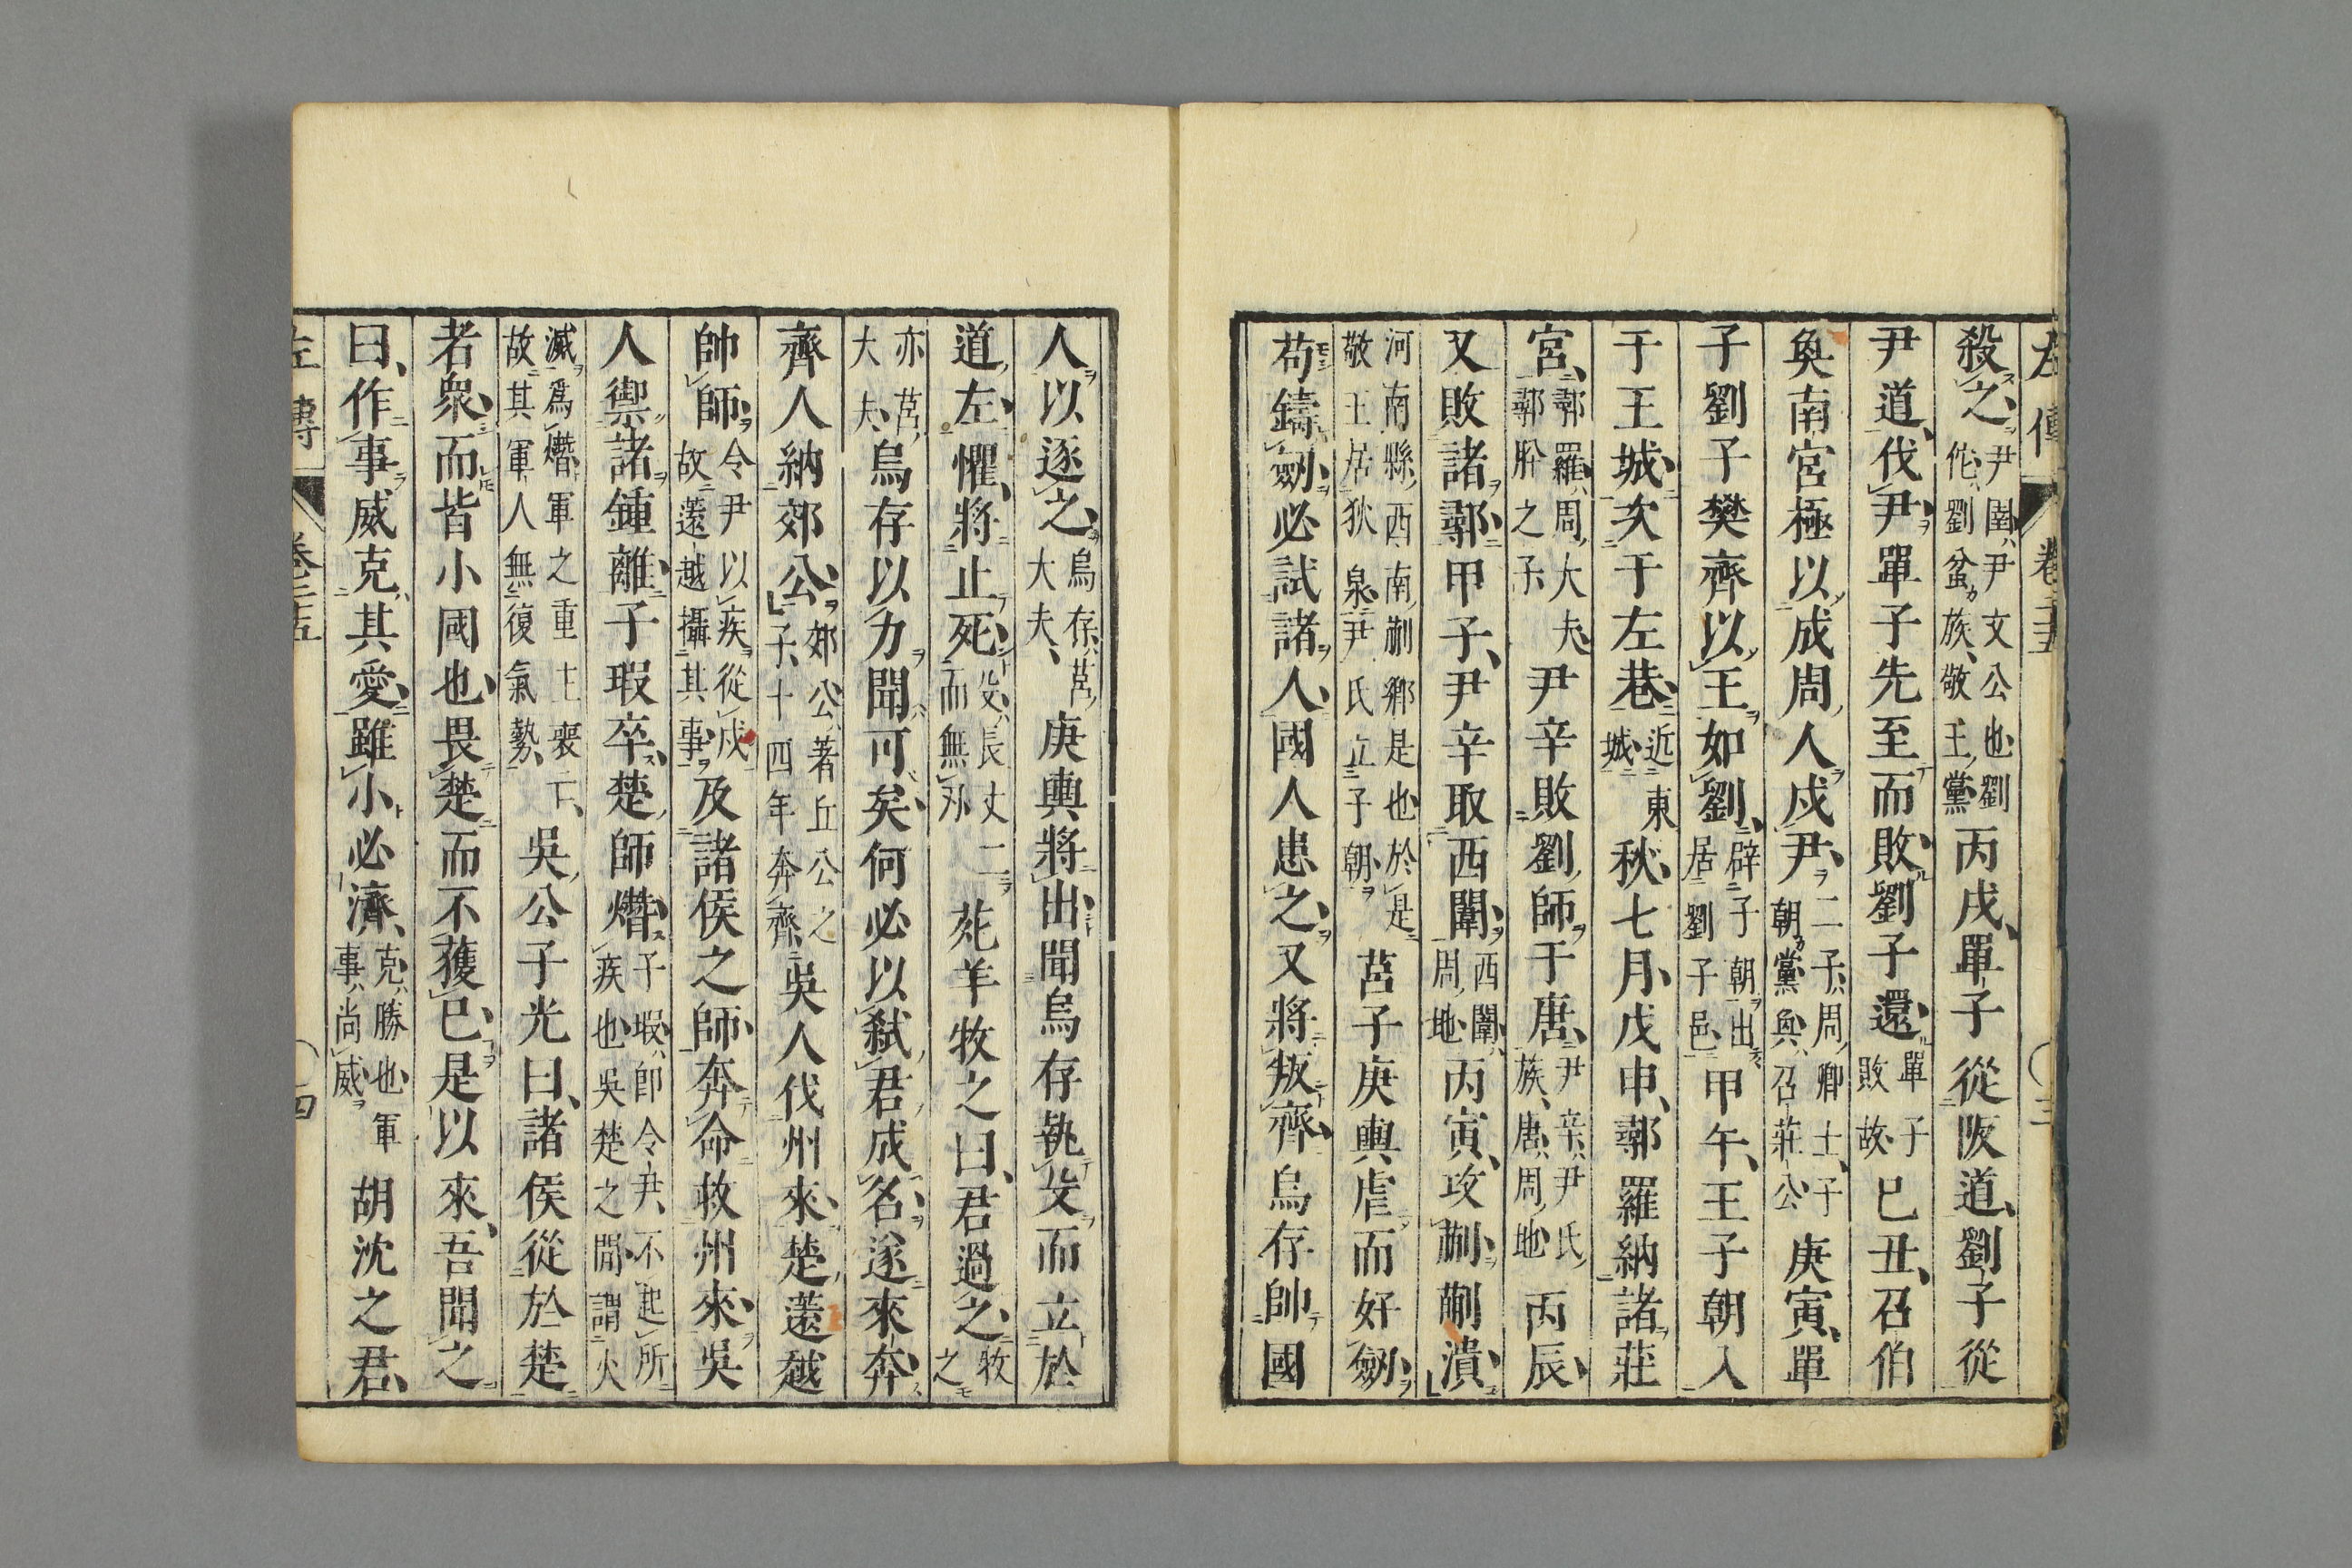 左傳 卷二十五 三
殺之尹圉尹文公也劉佗劉盆族敬王黨丙戌單子從阪道劉子從
尹道伐尹單子先至而敗劉子還單子敗故己丑召伯
奐南宮極以成周人戍尹二子周卿士子朝黨奐召莊公庚寅單
子劉子樊齊以王如劉辟子朝出居劉子邑甲午王子朝入
于王城次于左巷近東城秋七月戊申鄩羅納諸莊
宮鄩羅周大夫鄩肸之子尹辛敗劉師于唐尹辛尹氏族唐周地丙辰
又敗諸鄩甲子尹辛取西闈西闈周地丙寅攻蒯蒯潰
河南縣西南蒯鄉是也於是敬王居狄泉尹氏立子朝莒子庚輿虐而好劒
苟鑄劒必試諸人國人患之又將叛齊烏存帥國
人以逐之烏存莒大夫庚輿將出聞烏存執殳而立於
道左懼將止死殳長丈二而無刃苑羊牧之曰君過之牧之
亦莒大夫烏存以力聞可矣何必以弑君成名遂來奔
齊人納郊公郊公著丘公之子十四年奔齊吳人伐州來楚薳越
帥師令尹以疾從戎故薳越攝其事及諸侯之師奔命救州來吳
人禦諸鍾離子瑕卒楚師熸子瑕卽令尹不起所疾也吳楚之閒謂火
滅爲熸軍之重主喪亡故其軍人無復氣勢吳公子光曰諸侯從於楚
者衆而皆小國也畏楚而不獲已是以來吾聞之
曰作事威克其愛雖小必濟克勝也軍事尚威胡沈之君
左傳 卷二十五 四